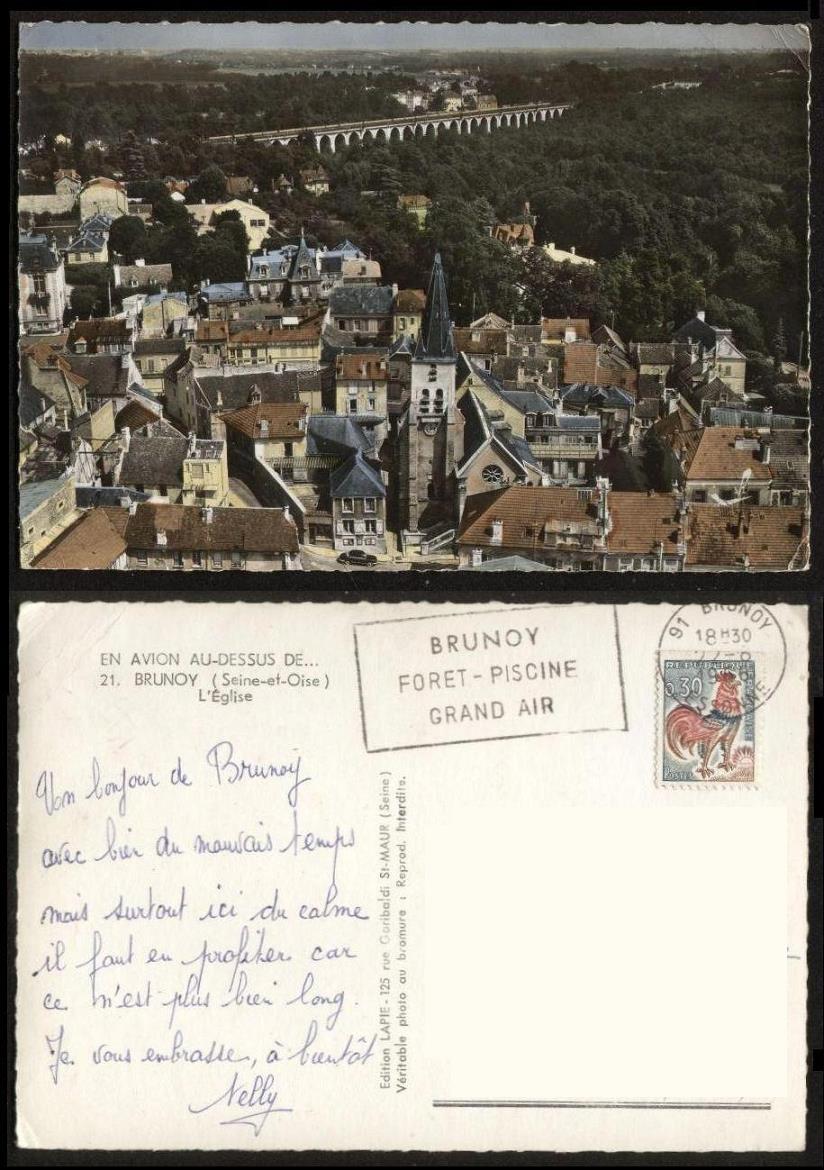 EN AVION AU-DESSUS DE...
21. BRUNOY (Seine-et-Oise)
L'Église
BRUNOY
FORET-PISCINE
GRAND AIR
91 BRUNOY
18H30
REPUBLIQUE
0,30
POSTES
Un bonjour de Brunoy
avec bien du mauvais temps
mais surtout ici du calme
il faut en profiter car
ce n'est plus bien long.
Je vous embrasse, à bientôt
Nelly
Edition LAPIE - 125 rue Garibaldi St-MAUR (Seine)
Véritable photo au bromure : Reprod. Interdite.